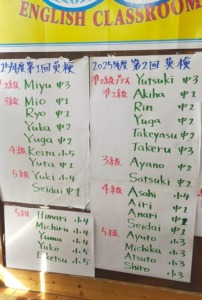 ENGLISH CLASSROOM
25年度第1回英検
準2級 Miyu 中3
3級 Mio 中2
Ryo 中2
Yuka 中2
Yuga 中2
4級 Keita 小5
Yuta 中1
5級 Yuki 小4
Seidai 中1
5級 Himari 小4
Michiru 小4
Yuma 小4
Yuko 小5
Eketsu 小5
2025年度第2回英検
準2級プラス Yutsuki 中3
準2級 Akiha 中1
Rin 中2
Yuga 中2
Takeyasu 中2
Takeru 中3
3級 Ayano 中2
Satsuki 中2
4級 Asahi 小4
Airi 中1
Anari 中1
Seidai 中1
5級 Ayato 小2
Michika 小3
Atsuto 小3
Shiro 小3